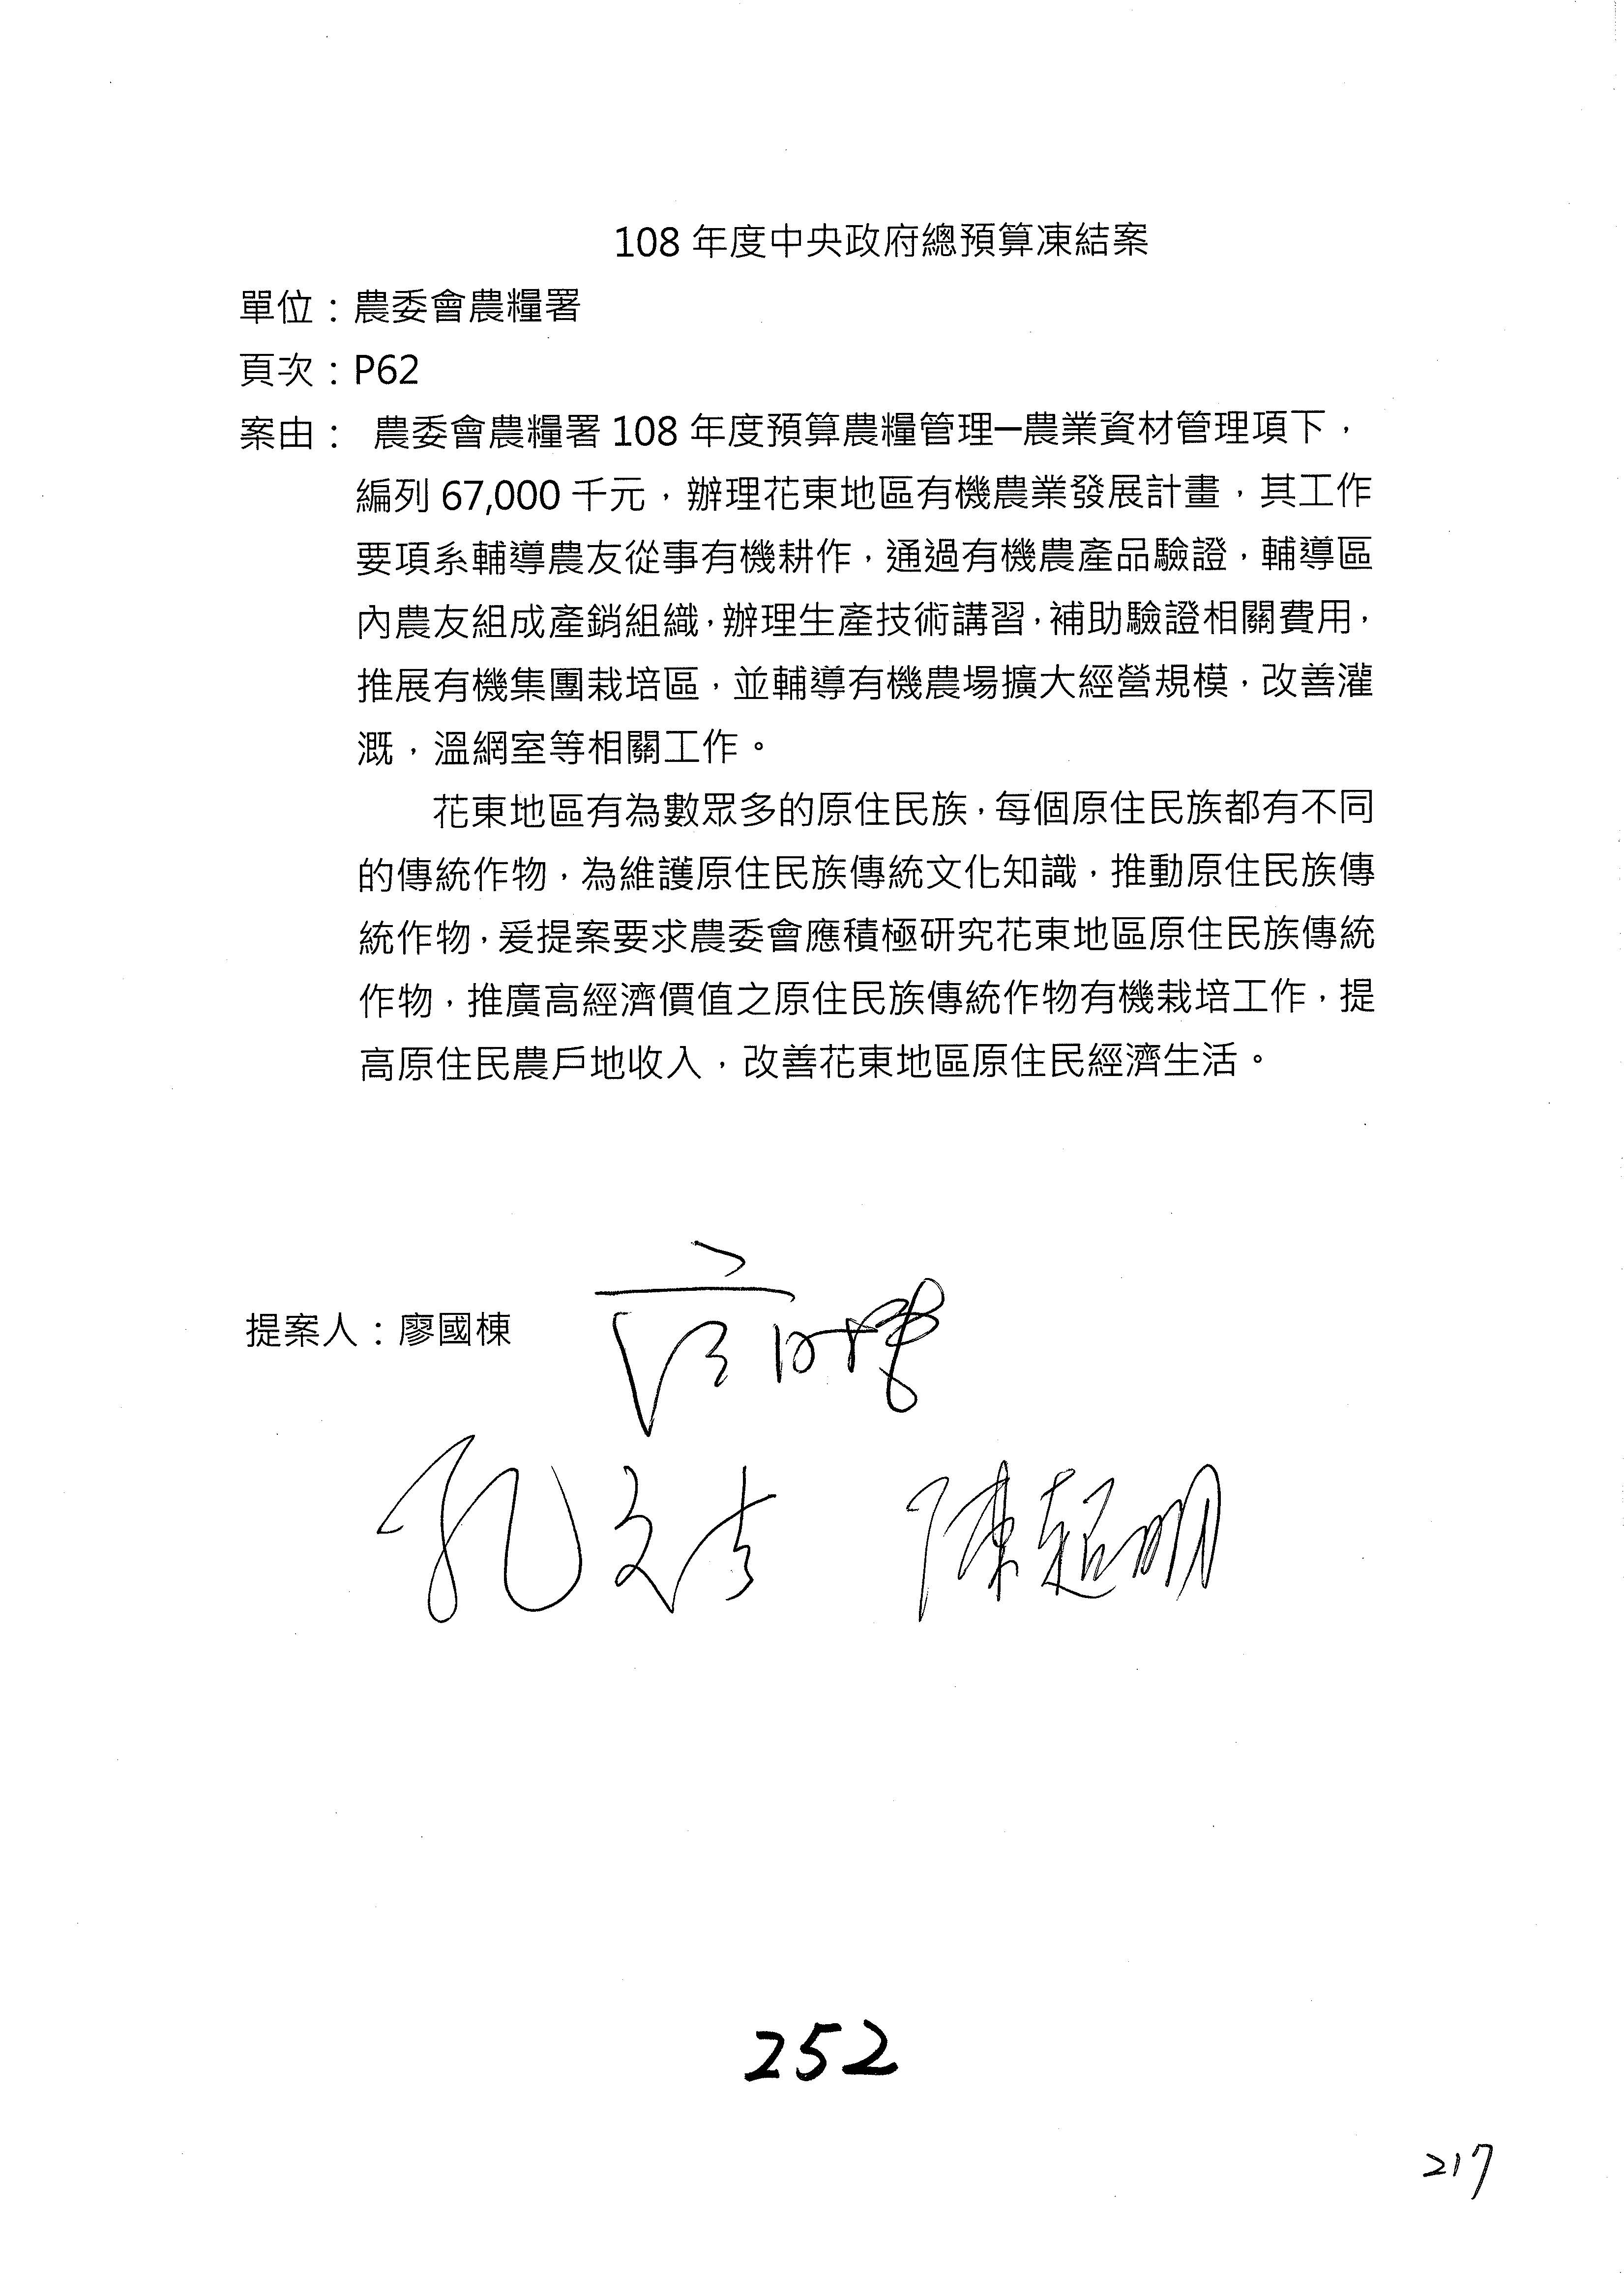 108 年度中央政府總預算凍結案
單位：農委會農糧署
頁次：P62
案由： 農委會農糧署 108 年度預算農糧管理—農業資材管理項下，
編列 67,000 千元，辦理花東地區有機農業發展計畫，其工作
要項系輔導農友從事有機耕作，通過有機農產品驗證，輔導區
內農友組成產銷組織，辦理生產技術講習，補助驗證相關費用，
推展有機集團栽培區，並輔導有機農場擴大經營規模，改善灌
溉，溫網室等相關工作。
花東地區有為數眾多的原住民族，每個原住民族都有不同
的傳統作物，為維護原住民族傳統文化知識，推動原住民族傳
統作物，爰提案要求農委會應積極研究花東地區原住民族傳統
作物，推廣高經濟價值之原住民族傳統作物有機栽培工作，提
高原住民農戶地收入，改善花東地區原住民經濟生活。
提案人：廖國棟
廖國棟
孔文吉 陳超明
252
217